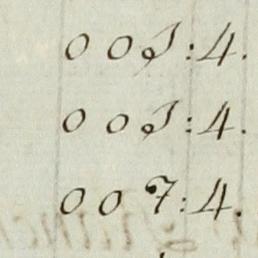 0 0 5:4.
0 0 5:4.
0 0 7:4.